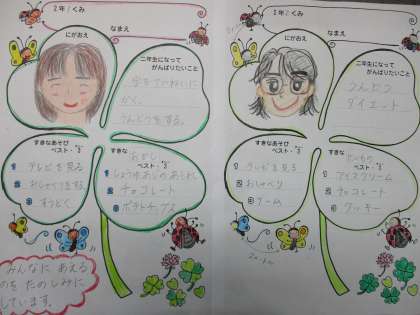 2年1くみ
なまえ
にがおえ
二年生になって
がんばりたいこと
字をていねいに
かく。
うんどうをする。
すきなあそび
ベスト・3
① テレビを見る
② おしゃべりをする
③ すうどく
すきな おかし
ベスト・3
① しょうゆあじのあられ
② チョコレート
③ ポテトチップス
みんなに あえる
のを たのしみに
しています。
2年 くみ
なまえ
にがおえ
二年生になって
がんばりたいこと
うんどう
ダイエット
すきなあそび
ベスト・3
① テレビを見る
② おしゃべり
③ ゲーム
すきな
ベスト・3
① アイスクリーム
② チョコレート
③ クッキー